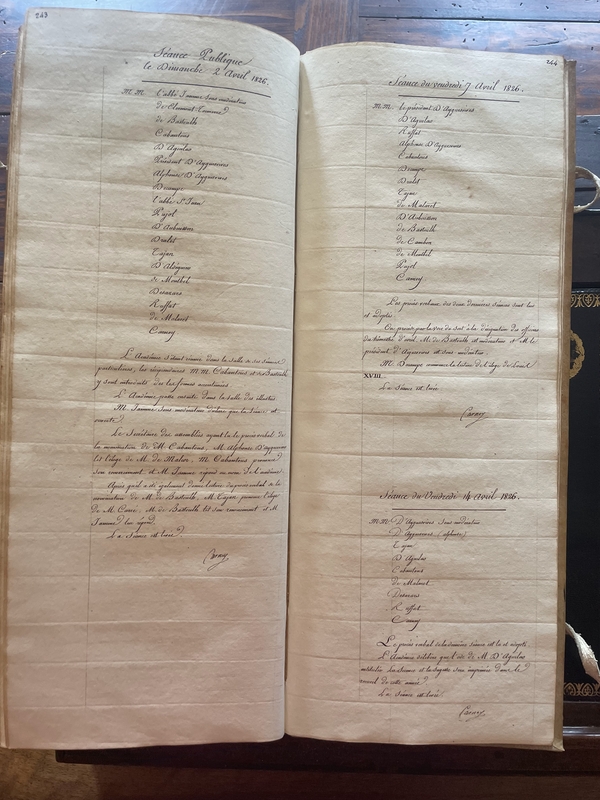 243
Séance Publique
le Dimanche 2 Avril 1826.
M.M. l'abbé Jamme sous modérateur
de Clement
de Bastoulh
Cabantous
D'Aguilar
Président D'Aygusvives
Alphonse D'Aygusvives
Decampe
l'abbé St Jean
Pujol
D'Aubuisson
Dralet
Tajan
D'
de Montbel
Desazars
Raffat
de Malaret
Carney
L'Académie s'étant réunie dans la Salle de ses Séances
particulières, les récipiendaires M.M. Cabantous et de Bastoulh
y sont introduits dans les formes accoutumées.
L'Académie passe ensuite dans la salle des illustres.
M. Jamme Sous modérateur déclare que la Séance est
ouverte.
Le Secrétaire des assemblées ayant lu le procès verbal de
la nomination de M. Cabantous, M. Alphonse D'Aygusvives
lit l'éloge de M. de M. Cabantous prononce
son remerciment et M. Jamme répond au nom de l'académie.
Après qu'il a été également donné lecture du procès verbal de la
nomination de M. de Bastoulh, M. Tajan prononce l'éloge
de M. M. de Bastoulh lit son remerciment et M.
Jamme lui répond.
La Séance est levée.
Carney
244
Séance du vendredi 7 Avril 1826.
M.M. Le président D'Aygusvives
D'Aguilar
Raffat
Alphonse D'Aygusvives
Cabantous
Decampe
Dralet
Tajan
de Malaret
D'Aubuisson
de Bastoulh
de Cambon
de Montbel
Pujol
Carney
Les procès verbaux des deux dernières Séances sont lus
et adoptés.
On procède par la voie du sort à la désignation des officiers
du trimestre d'avril. M. de Bastoulh est modérateur et M. le
président d'Aygusvives est sous modérateur.
M. Decampe commence la lecture de l'éloge de Louis
XVIII.
La Séance est levée
Carney
Séance du Vendredi 14 Avril 1826.
M.M. D'Aygusvives Sous modérateur
D'Aygusvives (alphonse)
Tajan
D'Aguilar
Cabantous
de Malaret
Desazars
Raffat
Carney
Le procès verbal de la dernière Séance est lu et adopté.
L'Académie délibère que l'ode de M. D'Aguilar
intitulée la Science et la Sagesse sera imprimée dans le
recueil de cette année.
La Séance est levée
Carney